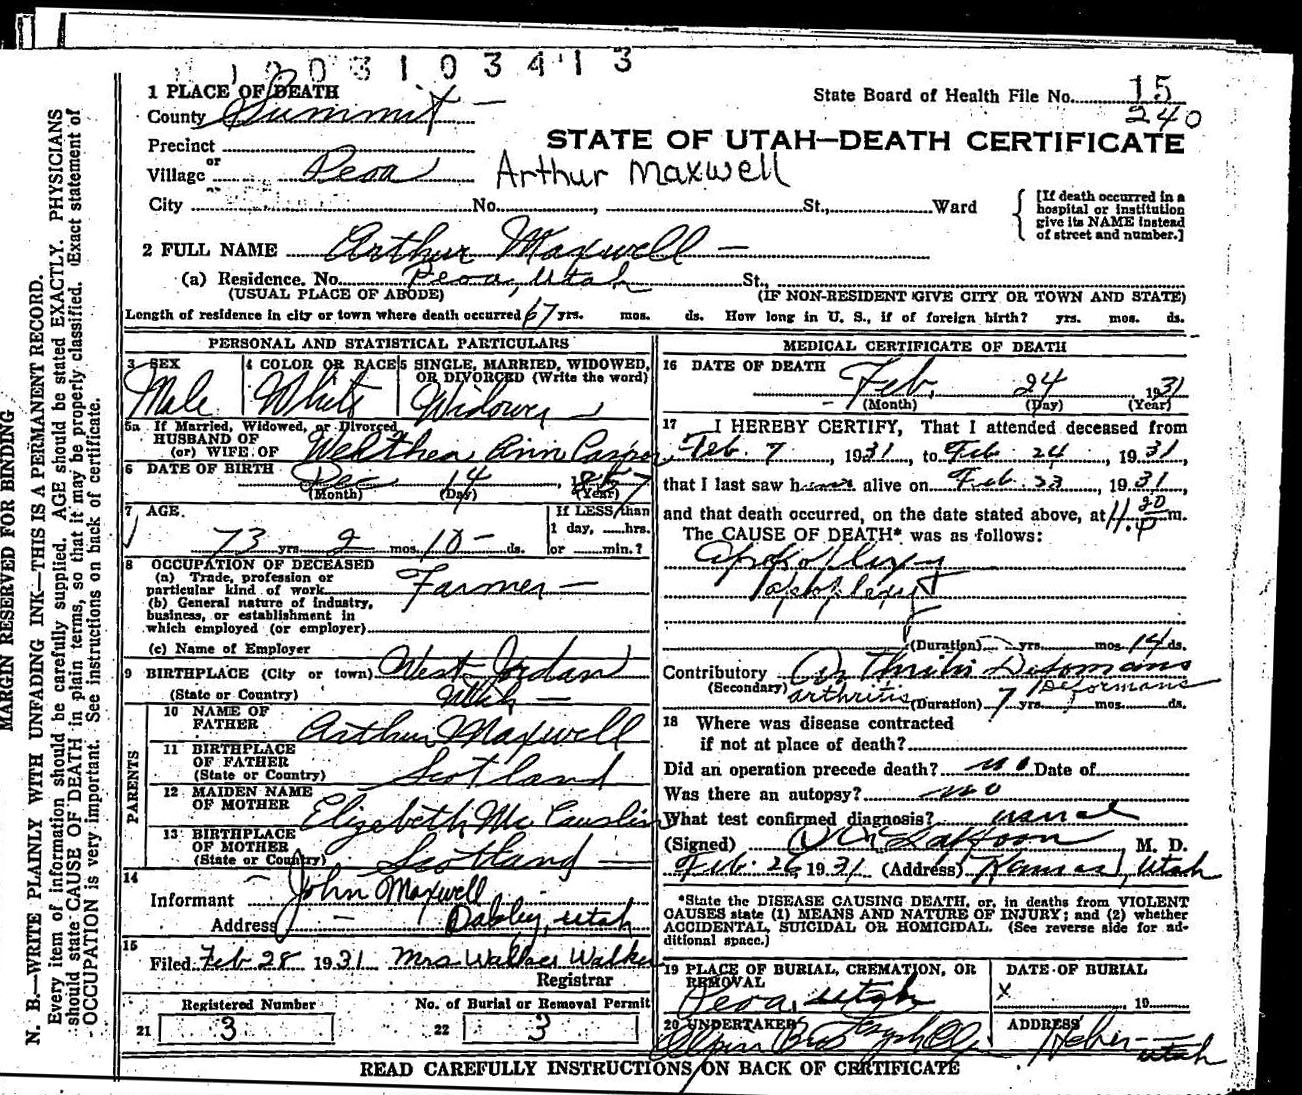 1 2 0 3 1 0 3 4 1 3
1 PLACE OF DEATH
State Board of Health File No. 15
240
County Summit
STATE OF UTAH—DEATH CERTIFICATE
Precinct
or
Village Peoa
Arthur Maxwell
City No. , St., Ward
[If death occurred in a
hospital or institution
give its NAME instead
of street and number.]
2 FULL NAME Arthur Maxwell
(a) Residence. No. Peoa, Utah St.,
(USUAL PLACE OF ABODE) (IF NON-RESIDENT GIVE CITY OR TOWN AND STATE)
Length of residence in city or town where death occurred 67 yrs. mos. ds. How long in U. S., if of foreign birth? yrs. mos. ds.
PERSONAL AND STATISTICAL PARTICULARS
3 SEX
Male
4 COLOR OR RACE
White
5 SINGLE, MARRIED, WIDOWED,
OR DIVORCED (Write the word)
Widower
5a If Married, Widowed, or Divorced
HUSBAND OF
(or) WIFE OF Welthea Ann Casper
6 DATE OF BIRTH
Dec 14, 1857
(Month) (Day) (Year)
7 AGE.
73 yrs. 2 mos. 10 ds.
If LESS than
1 day, hrs.
or min.?
8 OCCUPATION OF DECEASED
(a) Trade, profession or
particular kind of work Farmer
(b) General nature of industry,
business, or establishment in
which employed (or employer)
(c) Name of Employer
9 BIRTHPLACE (City or town) West Jordan
(State or Country) Utah
PARENTS
10 NAME OF
FATHER Arthur Maxwell
11 BIRTHPLACE
OF FATHER
(State or Country) Scotland
12 MAIDEN NAME
OF MOTHER Elizabeth Mc Causlin
13 BIRTHPLACE
OF MOTHER
(State or Country) Scotland
14
Informant John Maxwell
Address Dabby, Utah
15
Filed Feb 28 1931 Mrs Wallace Walker
Registrar
Registered Number
21 3
No. of Burial or Removal Permit
22 3
MEDICAL CERTIFICATE OF DEATH
16 DATE OF DEATH
Feb, 24 1931
(Month) (Day) (Year)
17 I HEREBY CERTIFY, That I attended deceased from
Feb. 7, 1931, to Feb 24, 1931,
that I last saw him alive on Feb. 23, 1931,
and that death occurred, on the date stated above, at 11.20 P m.
The CAUSE OF DEATH* was as follows:
Apoplexy
apoplexy
(Duration) yrs. mos. 14 ds.
Contributory Arthritis Deformans
(Secondary) arthritis Deformans
(Duration) 7 yrs. mos. ds.
18 Where was disease contracted
if not at place of death?
Did an operation precede death? no Date of
Was there an autopsy? no
What test confirmed diagnosis? usual
(Signed) M. D.
Feb. 26, 1931 (Address) Kamas, Utah
*State the DISEASE CAUSING DEATH, or, in deaths from VIOLENT
CAUSES state (1) MEANS AND NATURE OF INJURY; and (2) whether
ACCIDENTAL, SUICIDAL OR HOMICIDAL. (See reverse side for ad-
ditional space.)
19 PLACE OF BURIAL, CREMATION, OR
REMOVAL
Peoa, Utah
DATE OF BURIAL
X 19
20 UNDERTAKER
ADDRESS
Heber
Utah
READ CAREFULLY INSTRUCTIONS ON BACK OF CERTIFICATE
MARGIN RESERVED FOR BINDING
N. B.—WRITE PLAINLY WITH UNFADING INK—THIS IS A PERMANENT RECORD.
Every item of information should be carefully supplied. AGE should be stated EXACTLY. PHYSICIANS
should state CAUSE OF DEATH in plain terms, so that it may be properly classified. Exact statement of
OCCUPATION is very important. See instructions on back of certificate.